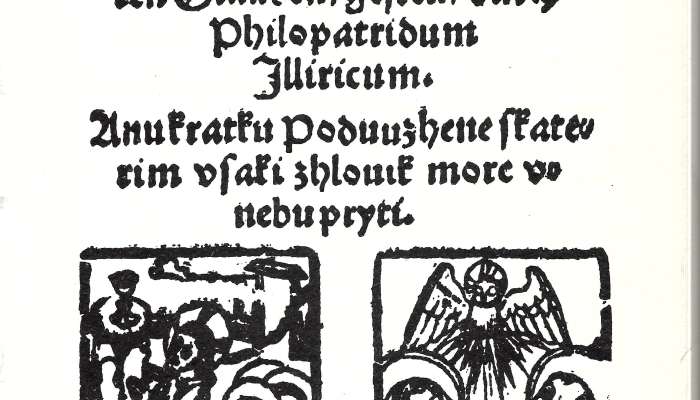 Philopatridum
Illiricum.
Anukratku Poduuzhene ſkate⸗
rim vſaki zhlouik more v⸗
nebu pryti.